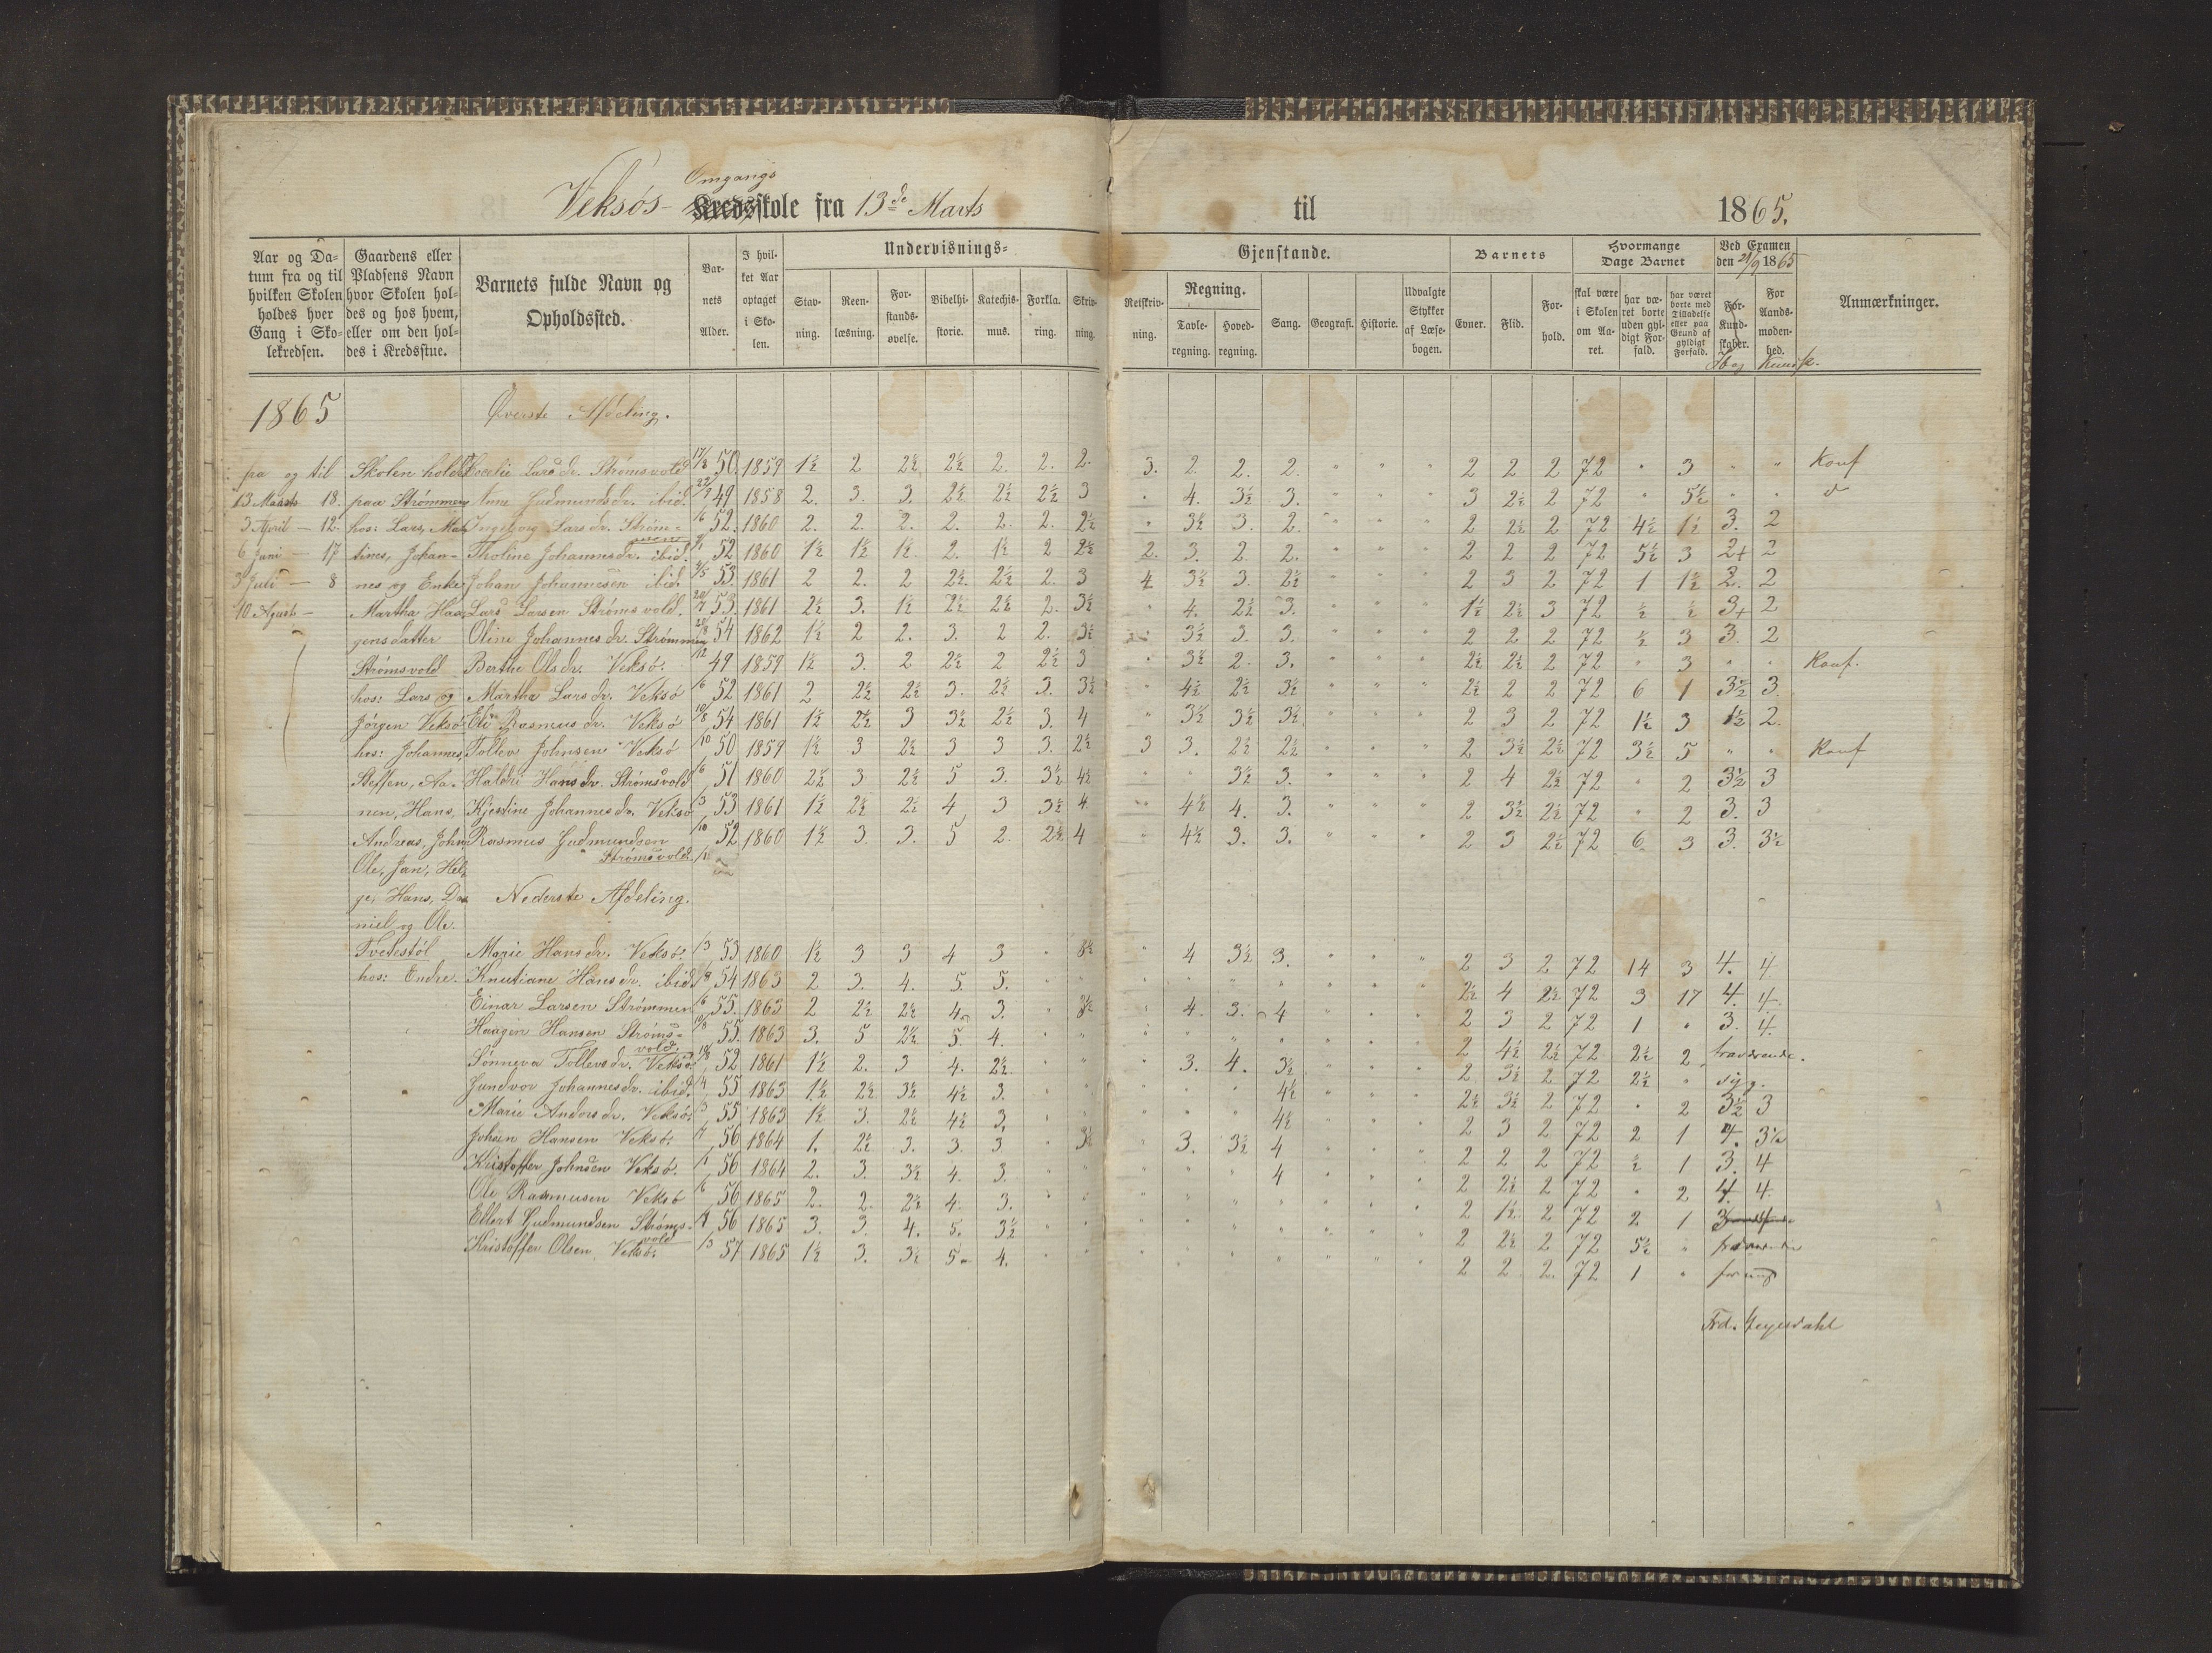 Veksøs- Omgangs
Kredsskole fra 13de Marts til 1865.
Aar og Da-
tum fra og til
hvilken Skolen
holdes hver
Gang i Sko-
lekredsen.
Gaardens eller
Pladsens Navn
hvor Skolen hol-
des og hos hvem,
eller om den hol-
des i Kredsstue.
Barnets fulde Navn og
Opholdssted.
Bar-
nets
Alder.
I hvil-
ket Aar
optaget
i Sko-
len.
Undervisnings-
Stav-
ning.
Reen-
læsning.
For-
stands-
øvelse.
Bibelhi-
storie.
Katechis-
mus.
Forkla-
ring.
Skriv-
ning.
Gjenstande.
Retskriv-
ning.
Regning.
Tavle-
regning.
Hoved-
regning.
Sang.
Geografi.
Historie.
Udvalgte
Stykker
af Læse-
bogen.
Barnets
Evner.
Flid.
For-
hold.
Hvormange
Dage Barnet
skal være
i Skolen
om Aa-
ret.
har væ-
ret borte
uden gyl-
digt For-
fald.
har været
borte med
Tilladelse
eller paa
Grund af
gyldigt
Forfald.
Ved Examen
den 21/9 1865
For
Kund-
skaber.
For
Aands-
moden-
hed.
Anmærkninger.
1865
Øverste Afdeling.
fra og til
13 Marts 18.
3 April - 12.
6 Juni - 17
3 Juli - 8
10 August -
Skolen holdt
paa Strømmen
hos: Lars, Mar-
tines, Johan-
nes og Enke
Martha Haa-
gensdatter
Strømsvold
hos: Lars og
Jørgen Veksø
hos: Johannes,
Steffen, Aa-
nen, Hans,
Andreas, John,
Ole, Jan, Hel-
ge, Hans, Da-
niel og Ole.
Tvedestøl
hos: Endre.
Larsdr. Strømsvold 50. 1859 1½ 2 2½ 2½ 2. 2. 2. 3. 2. 2. 2. 2 2 2 72 3 Konf
Anne Gudmundsdr. ibid. 49 1858 2. 3. 3. 2½ 2½ 2½ 3 4. 3½ 3. 3 2½ 2 72 5½
Ingeborg Larsdr. Strøm- 52. 1860 2. 2. 2. 2. 2. 2. 2½ 3½ 3. 2. 2 2½ 2 72 4½ 1½ 3. 2
Tholine Johannesdr. ibid. 52 1860 1½ 1½ 1½ 2. 1½ 2 2½ 2. 3. 2 2. 2 2 2 72 5½ 3 2+ 2
Johan Johannesen ibid. 53. 1861 2 2. 2 2½ 2½ 2. 3 4 3½ 3. 2½ 2 3 2 72 1 1½ 2. 2
Lars Larsen Strømsvold. 53. 1861 2½ 3. 1½ 2½ 2½ 2. 3½ 4. 2½ 3. 1½ 2½ 3 72 ½ ½ 3+ 2
Oline Johannesdr. Strømmen 54 1862 1½ 2 2. 3. 2 2. 3½ 3½ 3. 3. 2 2 2 72 ½ 3 3. 2
Berthe Olsdr. Veksø. 49 1859 1½ 3. 2 2½ 2 2½ 3 3½ 2. 3. 2½ 2½ 2 72 3 Konf.
Martha Larsdr. Veksø 52 1861 2 2½ 2½ 3. 2½ 3. 3½ 4½ 2½ 3½ 2½ 2 2 72 6 1 3½ 3.
Eli Rasmusdr. Veksø 54 1861 1½ 2½ 3 3½ 2½ 3. 4 3½ 3½ 3½ 2 3 2 72 1½ 3 1½ 2.
Tollev Johnsen Veksø 50 1859 1½ 3 2½ 3 3 3. 2½ 3 3. 2½ 2½ 2 3½ 2½ 72 3½ 5 Konf
Hansdr. Strømsvold 51 1860 2½ 3 2½ 5 3. 3½ 4½ 3½ 3. 2 4 2½ 72 2 3½ 3
Kjestine Johannesdr. Veksø 53 1861 1½ 2½ 2½ 4 3 3½ 4. 4½ 4. 3. 2 3½ 2½ 72 2 3. 3
Rasmus Gudmundsen 52 1860 1½ 3. 3. 5 2. 2½ 4 4½ 3. 3. 2 3 2½ 72 6 3 3. 3½
Strømsvold
Nederste Afdeling.
Marie Hansdr. Veksø. 53 1860 1½ 3 3 4 3 3½ 4 3½ 3. 2 3 2 72 14 3 4. 4
Knutiane Hansdr. ibid. 54 1863 2 3. 4. 5. 5. 2½ 4 2½ 72 3 17 4. 4.
Einar Larsen Strømmen 55. 1863 2 2½ 2½ 4. 3. 3½ 4. 3. 4 2 3 2 72 1 3. 4.
Haagen Hansen Strøms- 55. 1863 3. 5 2½ 5. 4. 2 4½ 2½ 72 2½ 2 fraværende.
vold.
Sønneva Tollevsdr. Veksø. 52 1861 1½ 2. 3 4. 2½ 3. 4. 3½ 2 3½ 2 72 2½ syg.
Gundvor Johannesdr. ibid. 55 1863 1½ 2½ 3½ 4½ 3. 4½ 2½ 3½ 2 72 2 3½ 3
Marie Andersdr. Veksø. 55 1863 1½ 3. 2½ 4½ 3. 4½ 2 3 2 72 2 1 4. 3½
Johan Hansen Veksø. 56 1864 1. 2½ 3. 3. 3 3½ 3. 3½ 4 2 2 2 72 ½ 1 3. 4
Kristoffer Johnsen Veksø. 56 1864 2. 3. 3½ 4. 3. 4 2 2½ 2 72 2 4. 4.
Ole Rasmusen Veksø 56 1865 2. 2. 2½ 4. 3. 2 1½ 2 72 2 1 3
Ellert Gudmundsen Strøms- 56 1865 3. 3. 4. 5. 3½ 2 2½ 2 72 5½ fraværende
vold
Kristoffer Olsen Veksø. 57 1865 1½ 3. 3½ 5. 4. 2 2 2. 72 1 for ung